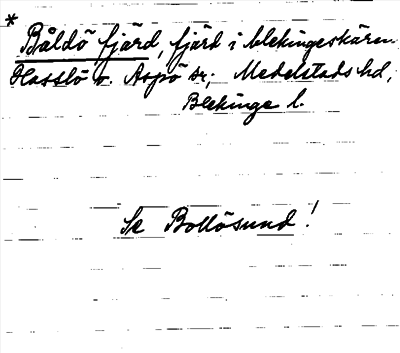 * Båldö fjärd, fjärd i blekingeskären.
Hasslö o. Aspö sr; Medelstads hd,
Blekinge l.
Se Bollösund!